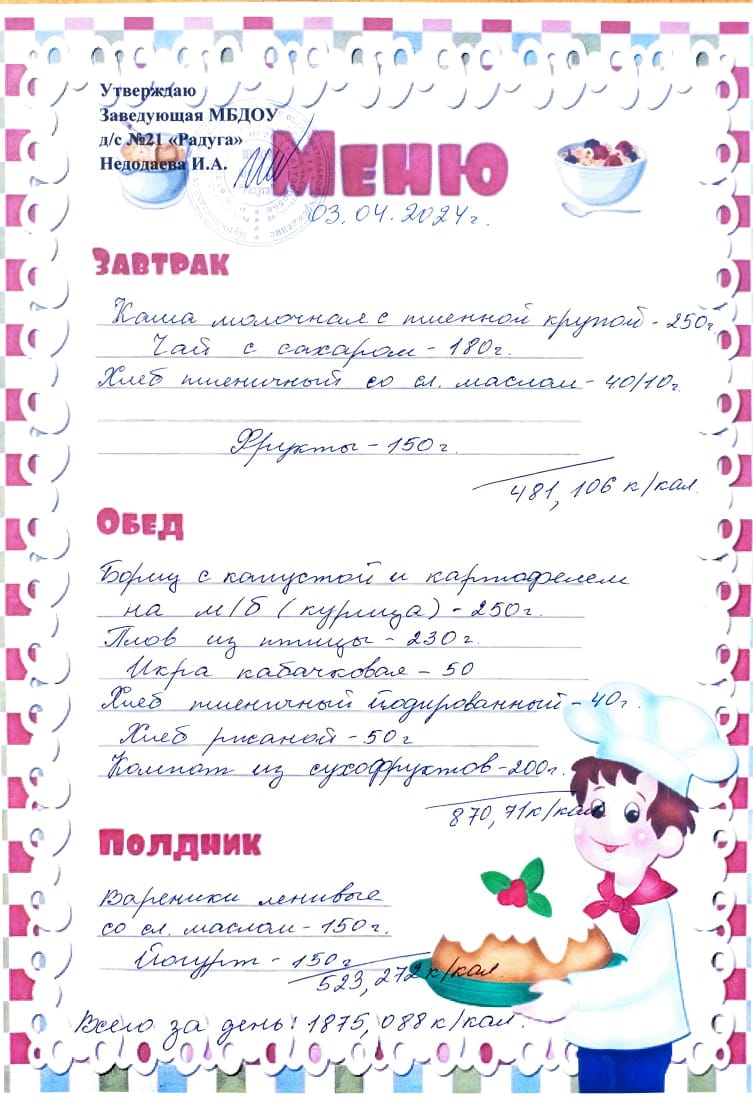 Утверждаю
Заведующая МБДОУ
д/с №21 «Радуга»
Недодаева И.А.
Меню
03.04.2024г.
Завтрак
Каша молочная с пшенной крупой - 250г.
Чай с сахаром - 180г.
Хлеб пшеничный со сл. маслом - 40/10г.
Фрукты - 150г.
481,106 к/кал.
Обед
Борщ с капустой и картофелем
на м/б (курица) - 250г.
Плов из птицы - 230г.
Икра кабачковая - 50
Хлеб пшеничный йодированный - 40г.
Хлеб ржаной - 50г
Компот из сухофруктов - 200г.
870,71к/кал
Полдник
Вареники ленивые
со сл. маслом - 150г.
Йогурт - 150г
523,272к/кал.
Всего за день: 1875,088к/кал.